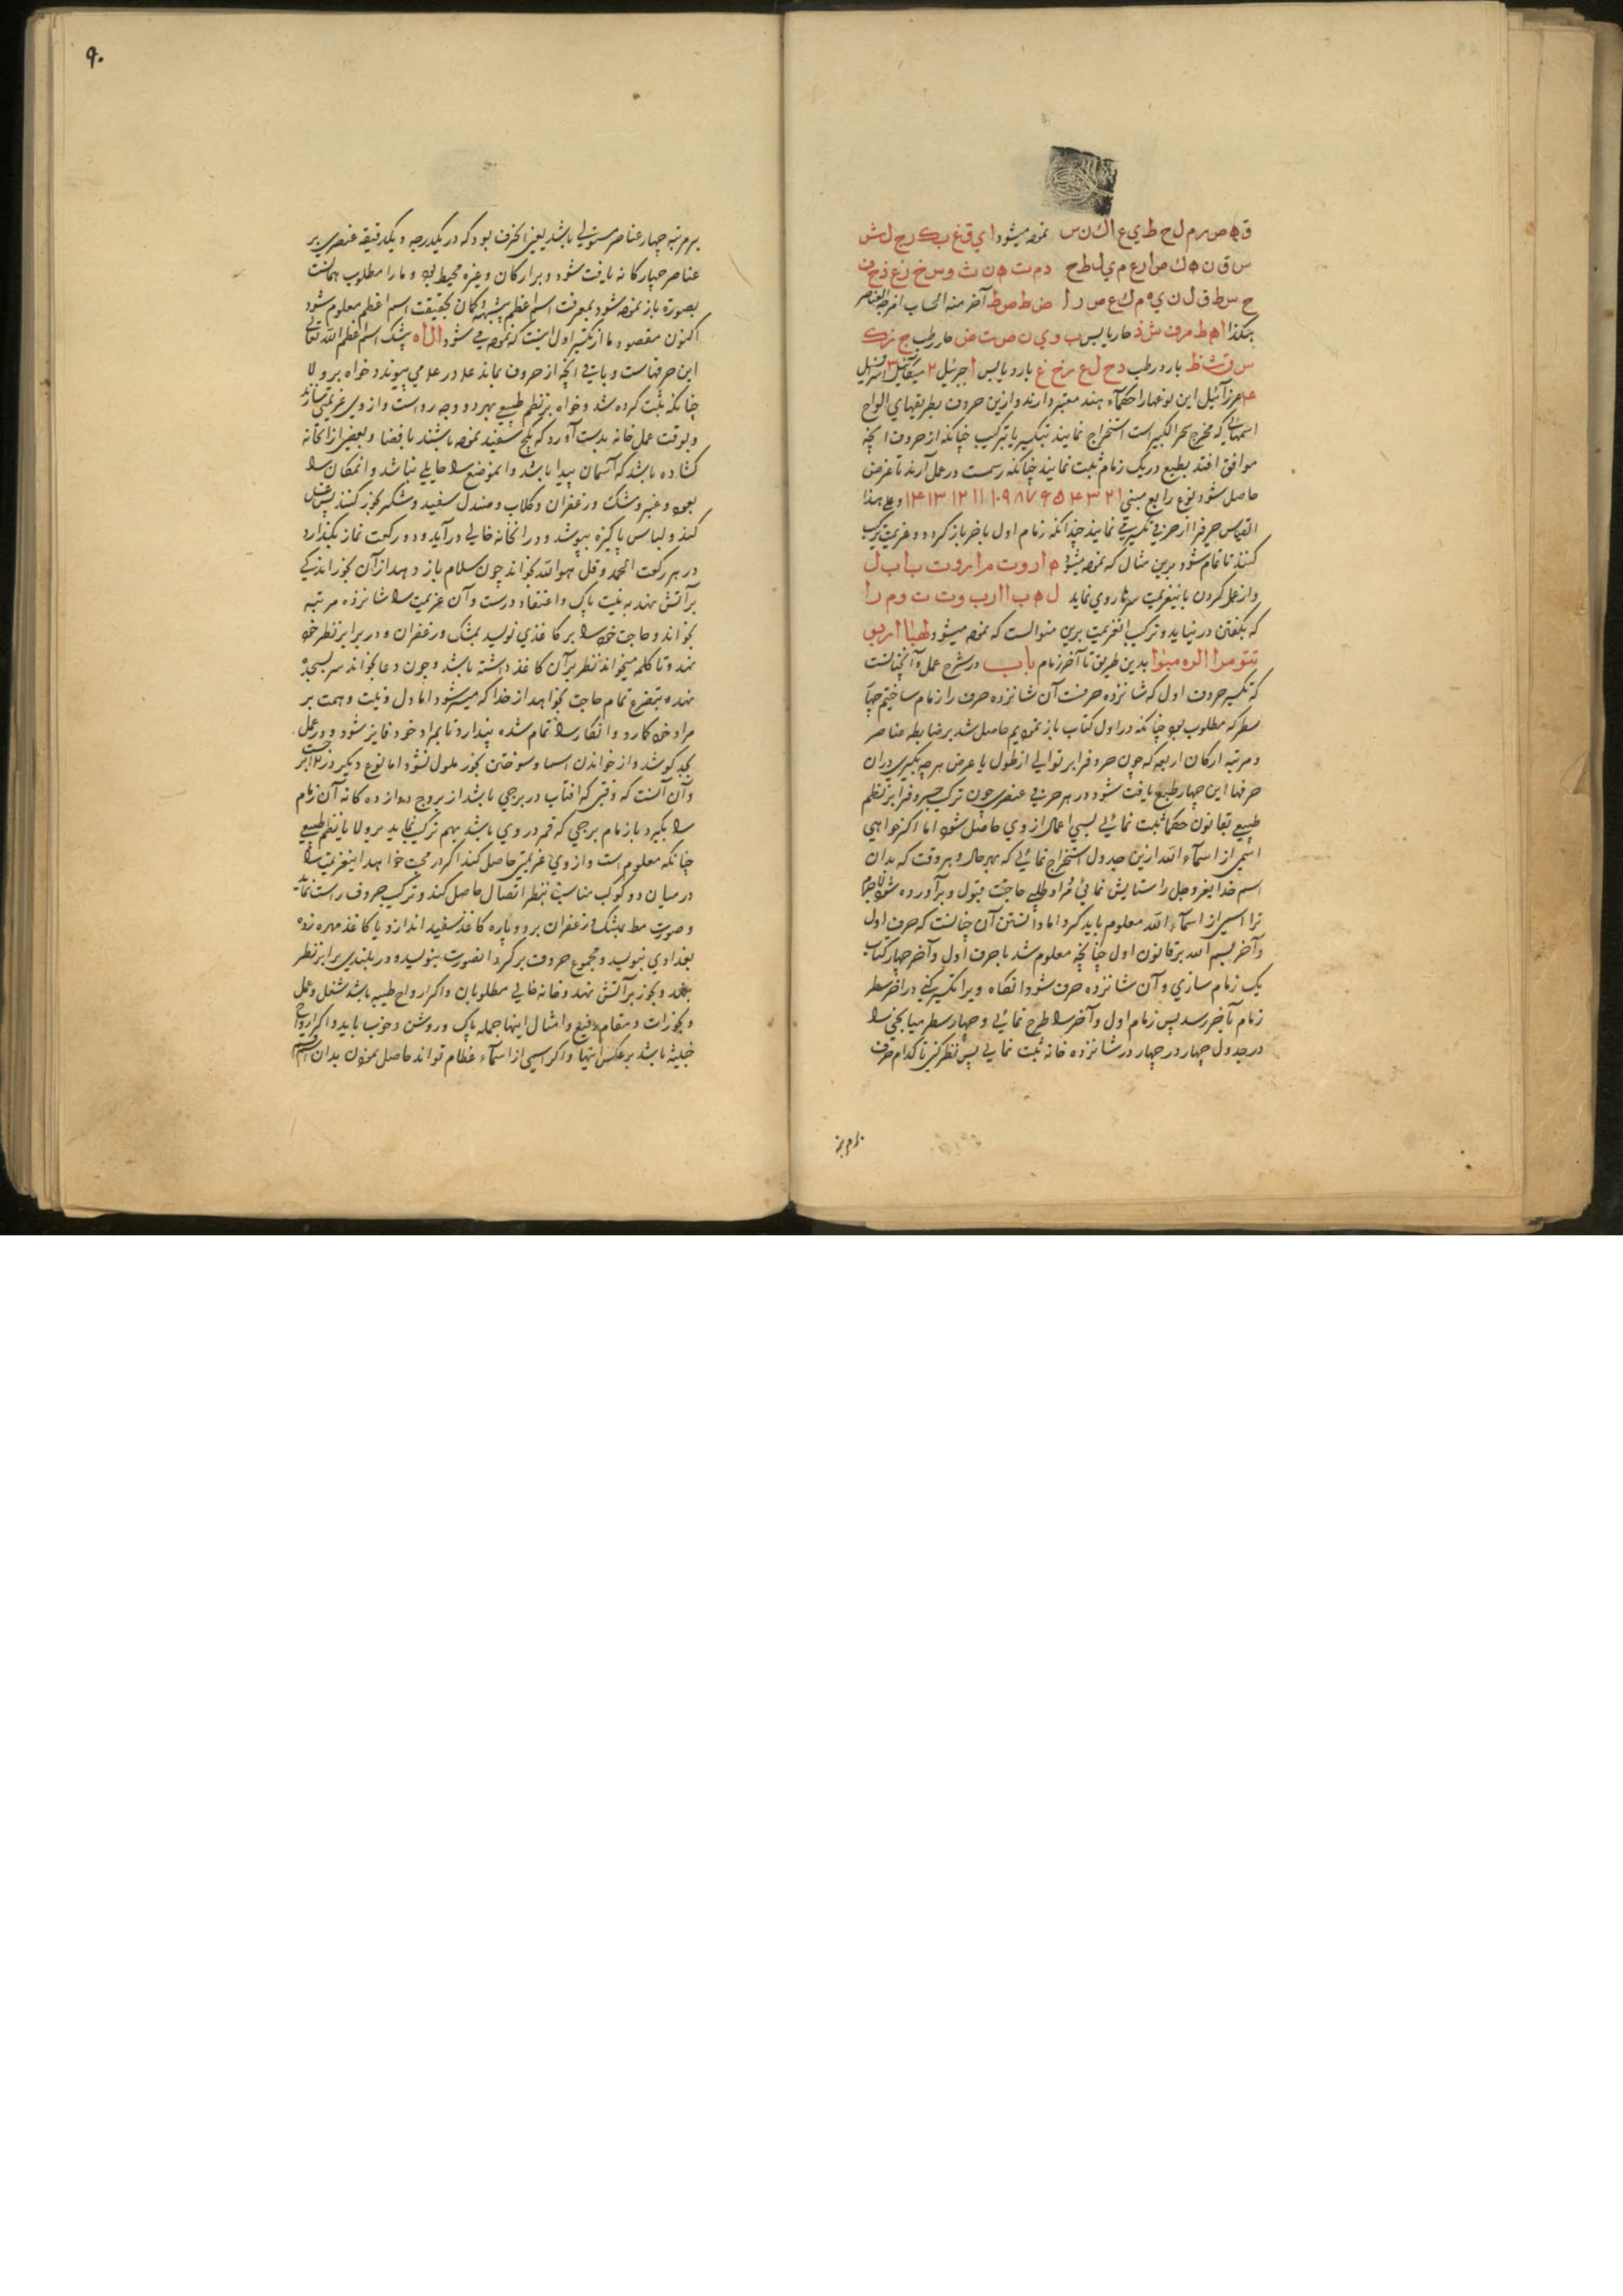 ق ه ص ر م ل ح ط ي ع ا ك ن س نموده میشود ا ي ق غ ب ك ر ج ل ش
س ق ن ه ك ص ا ر ع م ي ل ط ح د م ت ه ن ث و س خ ز ع ذ ح ف
ح س ط ق ل ن ي ه م ك ع ص ر ا ض ط ص ظ آخر منه الحساب
هكذا ا ه ط م ف ش ذ حار یابس ب و ي ن ص ت ض حار رطب ج ز ك
س ق ث ظ بارد رطب د ح ل ع ر خ غ بارد یابس ا جبرئیل ۲ میکائیل ۳ اسرافیل
۴ عزرآئیل این نوعها را حکمآء هند معتبر دارند و ازین حروف بطریقهای الواح
اسمهائی که مخرج بحر الکبیر است استخراج نمایند بتکسیر یا بترکیب چنانکه از حروف آنچه
موافق افتد بطبع در یک زمام ثبت نمایند چنانکه رسمست در عمل آرند تا غرض
حاصل شود نوع رابع مبنی ۱ ۲ ۳ ۴ ۵ ۶ ۷ ۸ ۹ ۱۰ ۱۱ ۱۲ ۱۳ ۱۴ و علی هذا
القیاس حرفرا از حرفی تکسیر نمایند چندانکه زمام اول باخر باز گردد و عزیمت ترکیب
کنند تا تمام شود برین مثال که نموده میشود ه ا د و ت م ا ب ر و ت ب ا ب ل
و از عمل کردن باینعزیمت سرها روی نماید ل ه ب ا ا ر ب و ت ت و م ر ا
که بگفتن در نیاید و ترکیب انعزیمت برین منوالست که نموده میشود
بدین طریق تا آخر زمام باب در شرح عمل و آنچنانست
که تکسیر حروف اول که شانزده حرفست آن شانزده حرف را زمام ساختیم چهار
سطر که مطلوب بود چنانکه در اول کتاب باز نمودیم حاصل شد بر ضابطه عناصر
و مرتبه ارکان اربعه که چون حروفرا بر توالی از طول یا عرض هر چه بگیری در آن
حرفها این چهار طبع یافت شود در هر حرفی عنصری چون ترکیب حروفرا بر نظم
طبیعی بقانون حکما ثبت نمائی بسی اعمال از وی حاصل شود اما اگر خواهی
اسمی از اسمآء الله ازین جدول استخراج نمائی که بهر حال و هر وقت که بدان
اسم خدایعزوجل را ستایش نمائی و مراد طلبی حاجتت قبول و برآورده شود
ترا اسمی از اسمآء الله معلوم باید کرد اما دانستن آن چنانست که حرف اول
و آخر بسم الله بر قانون اول چنانچه معلوم شد با حرف اول و آخر چهار کتاب
یک زمام سازی و آن شانزده حرف شود انگاه ویرا تکسیر کنی در آخر سطر
زمام بآخر رسد پس زمام اول و آخر را طرح نمائی و چهار سطر میانگین را
در جدول چهار در چهار در شانزده خانه ثبت نمائی پس نظر کنی تا کدام حرف
بر مرتبه
۹۰
بر مرتبه چهار عناصر مستولی باشد یعنی آنحرف بود که در یکدرجه و یکدقیقه عنصری بر
عناصر چهارگانه یافت شود و بر ارکان و غیره محیط بود و ما را مطلوب همانست
بصورة باز نموده شود بمعرفت اسم اعظم بیشبهه و گمان بحقیقت اسم اعظم معلوم شود
اکنون مقصود ما از تکسیر اول اینست که نموده می شود ا ل ل ه بیشک اسم اعظم الله تعالی
این حرفهاست و باقی آنچه از حروف بماند علی در علی می پیوندد خواه بر ولا
چنانکه ثبت کرده شد و خواه بر نظم طبیعی بهر دو وجه رواست و از وی عزیمتی سازند
و بوقت عمل خانه بدست آورد که بگچ سفید نموده باشند بافضا و بعضی از انخانه
گشاده باشد که آسمان پیدا باشد و انموضع را حایلی نباشد و انمکان را
بعود و عنبر و مشک و زعفران و گلاب و صندل سفید و شکر بخور کنند پس غسل
کند و لباس پاکیزه بپوشد و در انخانه خالی درآید و دو رکعت نماز بگذارد
در هر رکعت الحمد و قل هو الله بخواند چون سلام باز دهد از آن بخور اندکی
بر آتش نهد به نیت پاک و اعتقاد درست و آن عزیمت را شانزده مرتبه
بخواند و حاجت خود را بر کاغذی نویسد بمشک و زعفران و در برابر نظر خود
نهد و تا کلمه میخواند نظر بر آن کاغذ داشته باشد و چون دعا بخواند سر بسجده
نهد و بتضرع تمام حاجت بخواهد از خدا که میسر شود اما دل و نیت و همت بر
مراد خود گمارد و انکار را تمام شده پندارد تا بمراد خود فایز شود و در عمل
بجد کوشد و از خواندن اسما و سوختن بخور ملول نشود اما نوع دیگر
و آن آنست که وقتی که افتاب در برجی باشد از بروج دوازده گانه آن زمام
را بگیرد با زمام برجی که قمر در وی باشد بهم ترکیب نماید بر ولا یا بنظم طبیعی
چنانکه معلوم است و از وی عزیمتی حاصل کند اگر در محبت خواهد اینعزیمت را
در میان دو کوکب مناسبت بنظر اتصال حاصل کند و ترکیب حروف راست نماید
و صورت مط بمشک و زعفران بر دو پاره کاغذ سفید اندازد یا کاغذ مهره زده
بغدادی بنویسد و مجموع حروف بر گرد انصورت بنویسد و در بلندی برابر نظر
بنهد و بخور بر آتش نهد و خانه خالی مطلوبان و اگر ارواح طیبه باشد شغل و عمل
و بخورات و مقام رفیع و امثال اینها جمله پاک و روشن و خوب باید و اگر ارواح
خبیثه باشد برعکس اینها و اگر اسمی از اسمآء عظام تواند حاصل نمودن بدان اسم